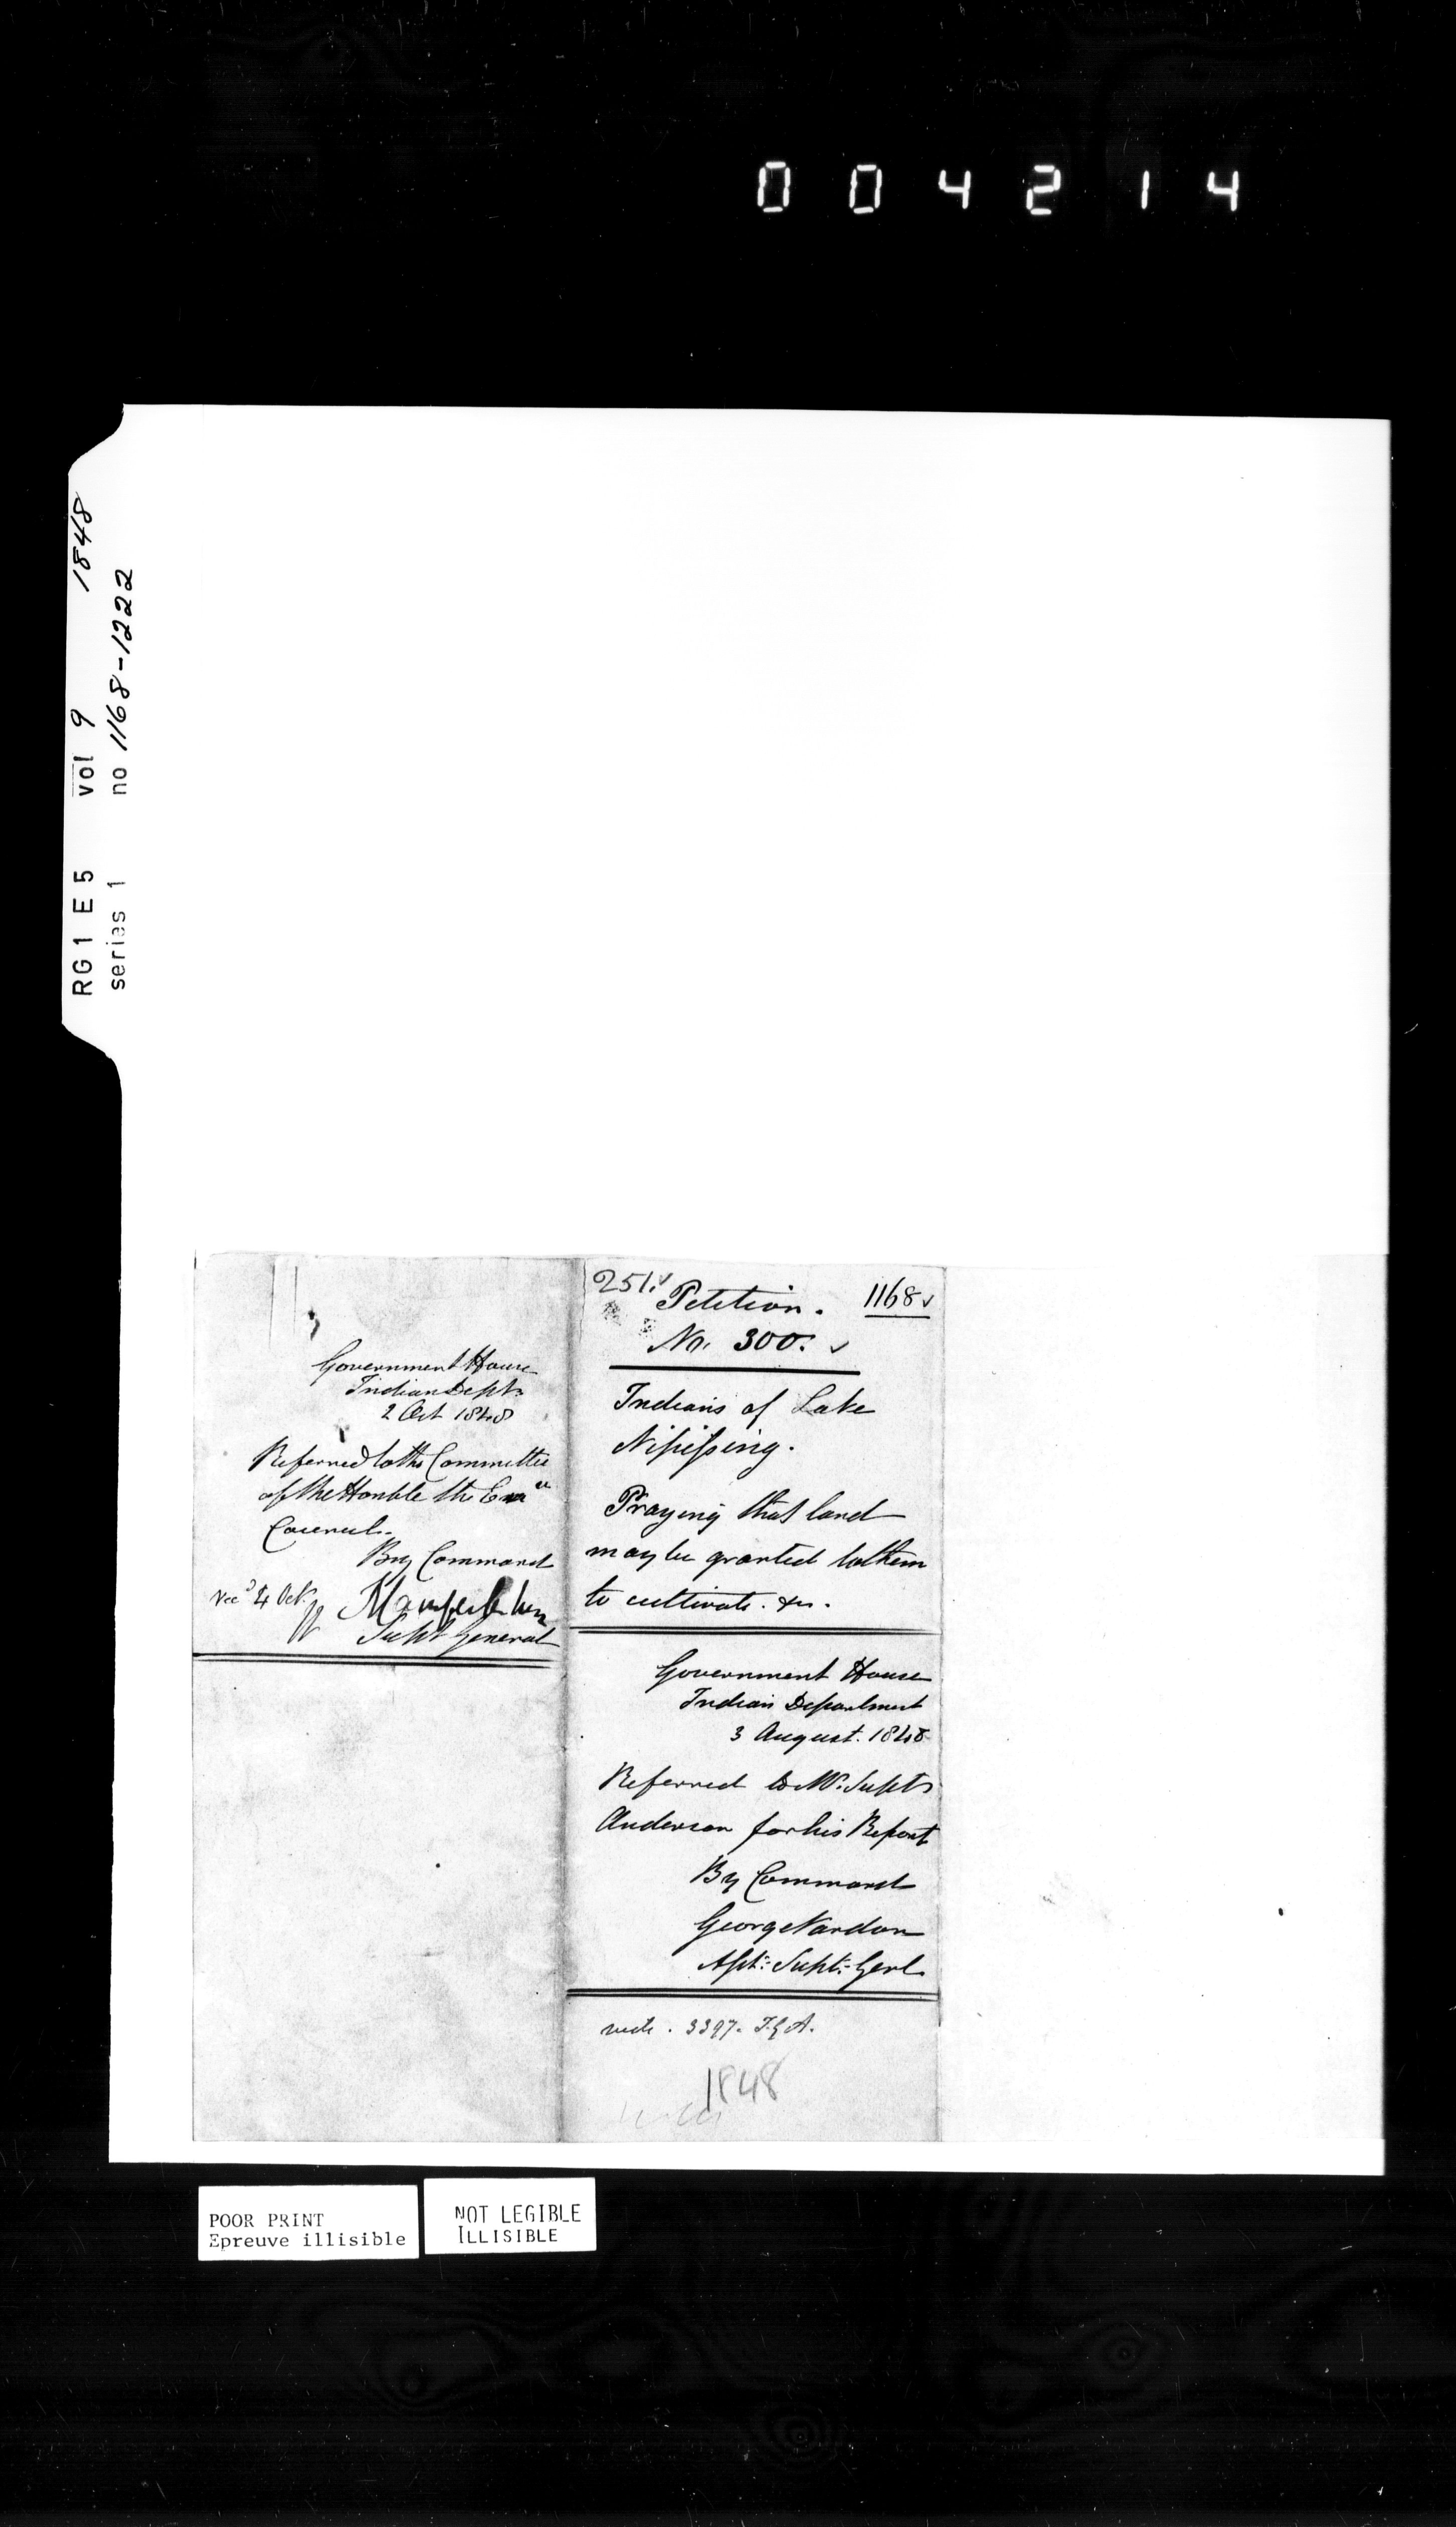 004214
RG1 E5 vol 9 1848
series 1 no 1168-1222
Government House
Indian Dept.
2 Oct 1848
Referred to the Committee
of the Honble the Exve
Council.
By Command
Recd 4 Oct.
Supt General
251.
Petition. 1168
No. 300.
Indians of Lake
Nipissing.
Praying that land
may be granted to them
to cultivate. &c.
Government House
Indian Department
3 August. 1848
Referred to Mr. Supt.
Anderson for his Report
By Command
George Vardon
Asst. Supt. Genl.
3397. T.G.A.
1848
POOR PRINT
Epreuve illisible
NOT LEGIBLE
ILLISIBLE